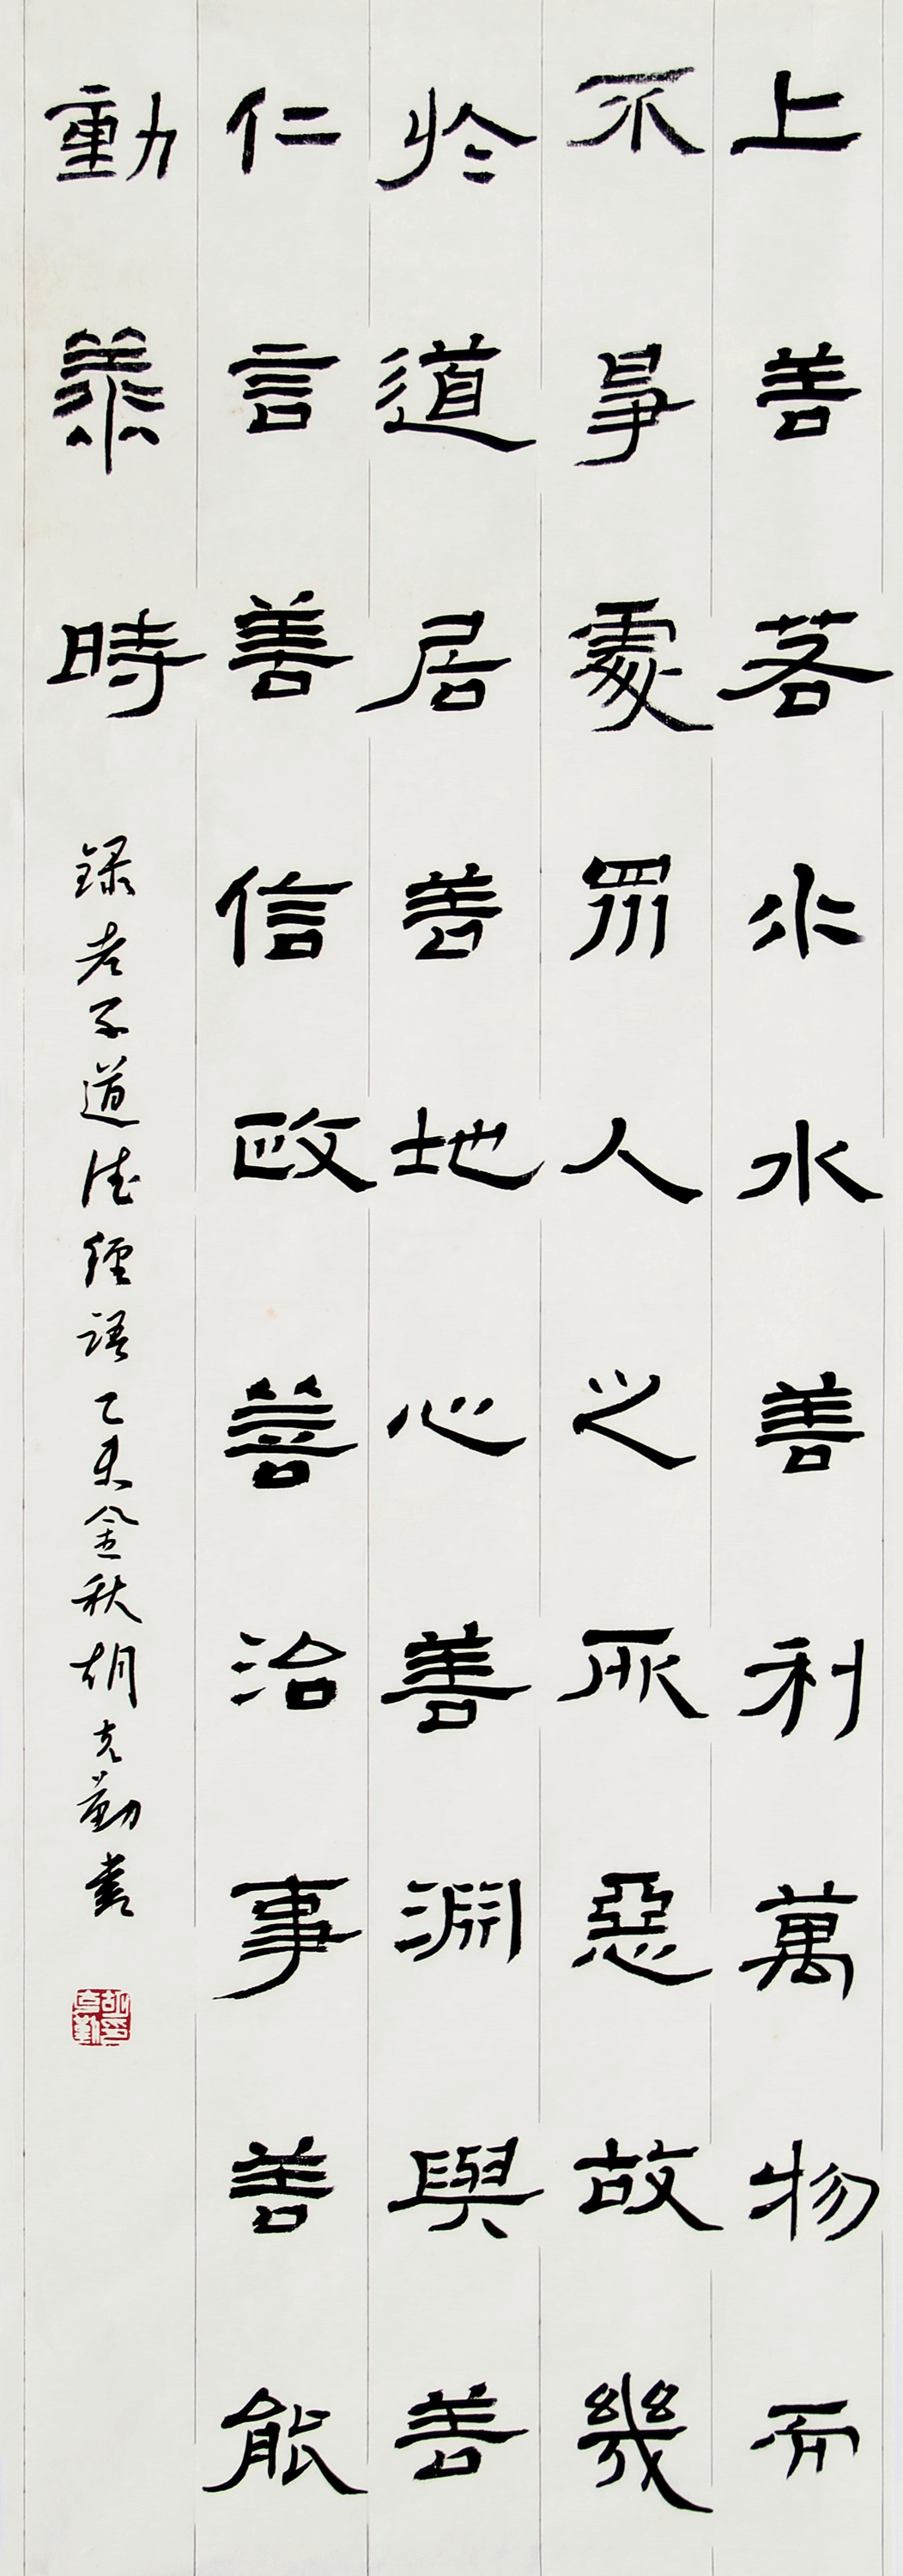 上善若水水善利萬物而
不爭處眾人之所惡故幾
於道居善地心善淵與善
仁言善信政善治事善能
動善時
錄老子道德經語乙未金秋胡克勤書
胡克勤印